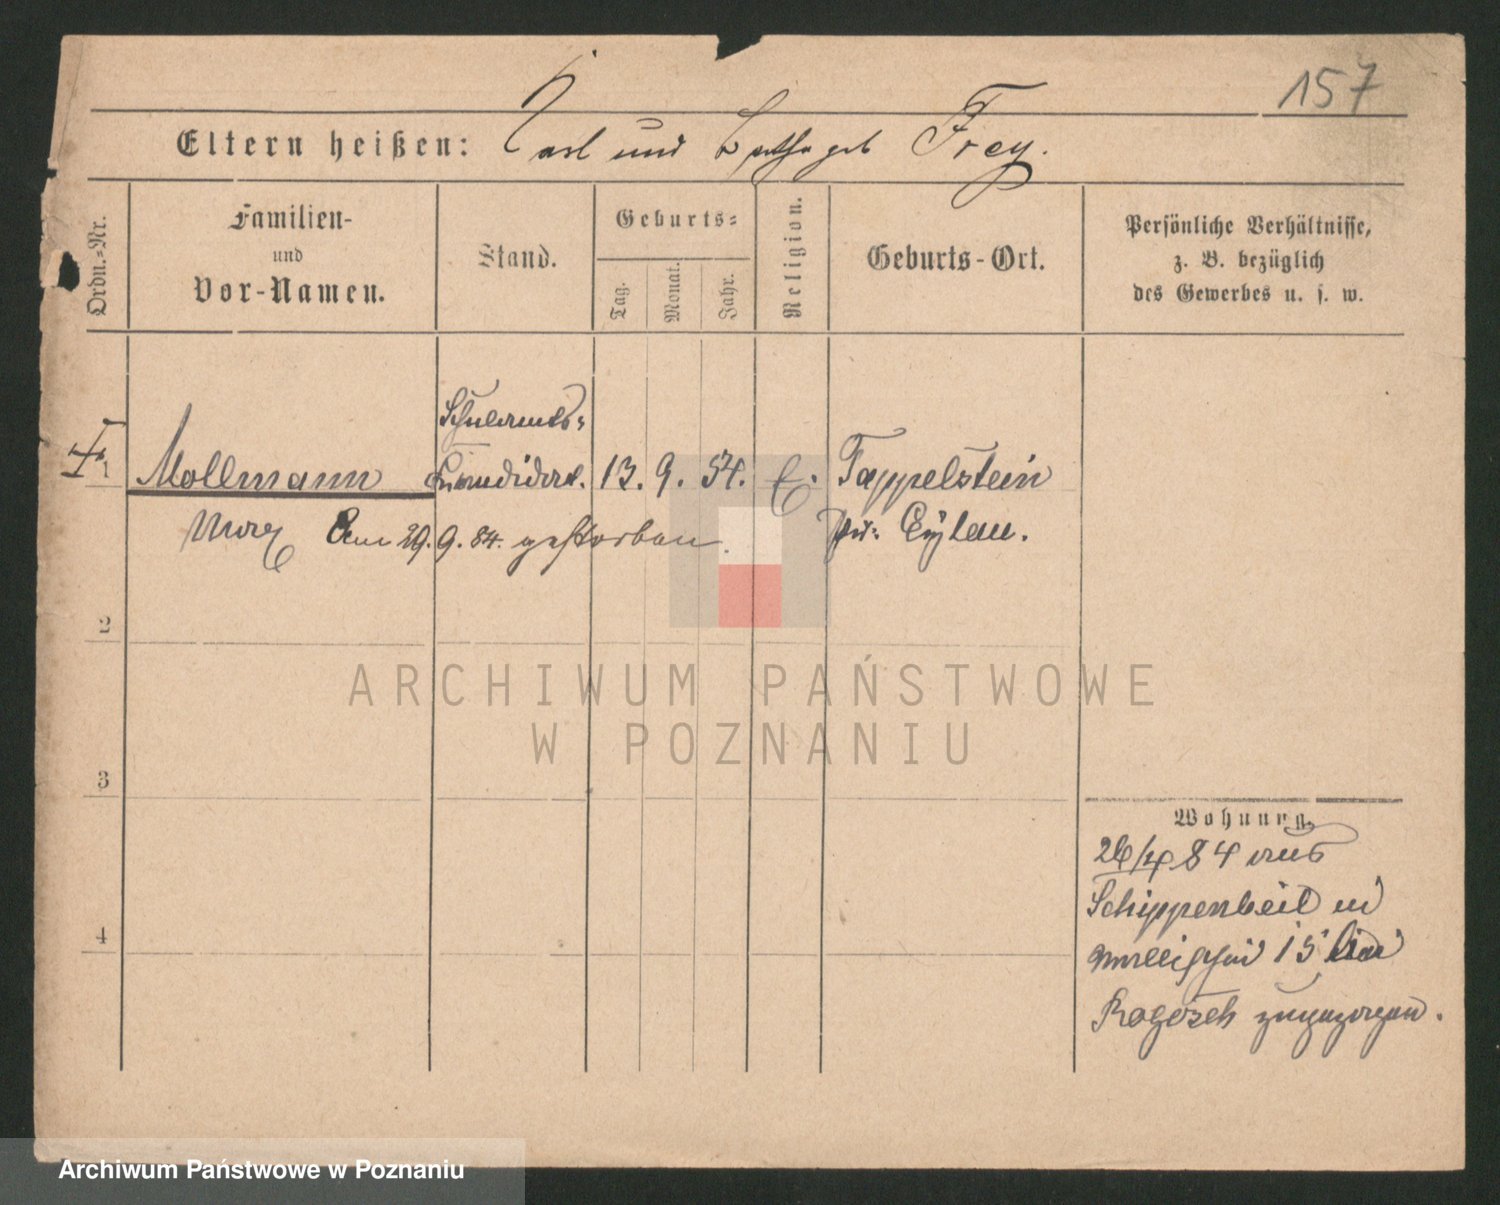 157
Eltern heißen: Carl und Bertha geb Frey.
Ordn.-Nr.
Familien-
und
Vor-Namen.
Stand.
Geburts-
Tag.
Monat.
Jahr.
Religion.
Geburts-Ort.
Persönliche Verhältnisse,
z. B. bezüglich
des Gewerbes u. s. w.
Schulamts-
1 Mollmann Kandidat. 13. 9. 54. E. Tappelstein
Max Am 29. 9. 84. gestorben. Pr: Eylau.
2
3
4
Wohnung.
26/4 84 aus
Schippenbeil in
15 bei
Rogosch zugezogen.
ARCHIWUM PAŃSTWOWE
W POZNANIU
Archiwum Państwowe w Poznaniu